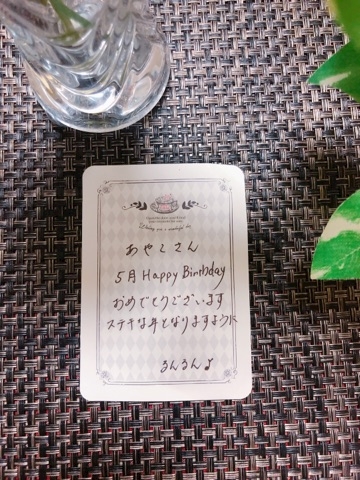 あやこさん
5月 Happy Birthday
おめでとうございます
ステキな年となりますように
るんるんよ